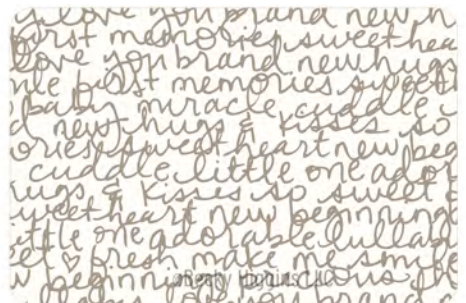 love you brand new h
first memories sweethea
love you brand new hugs
me first memories sweeth
baby miracle cuddle
d new hugs & kisses so
ories sweetheart new beg
cuddle little one ador
ugs & kisses so sweet
weetheart new beginning
ttle one adorable lullab
et fresh make me smile
w beginnin
©Becky Higgins LLC